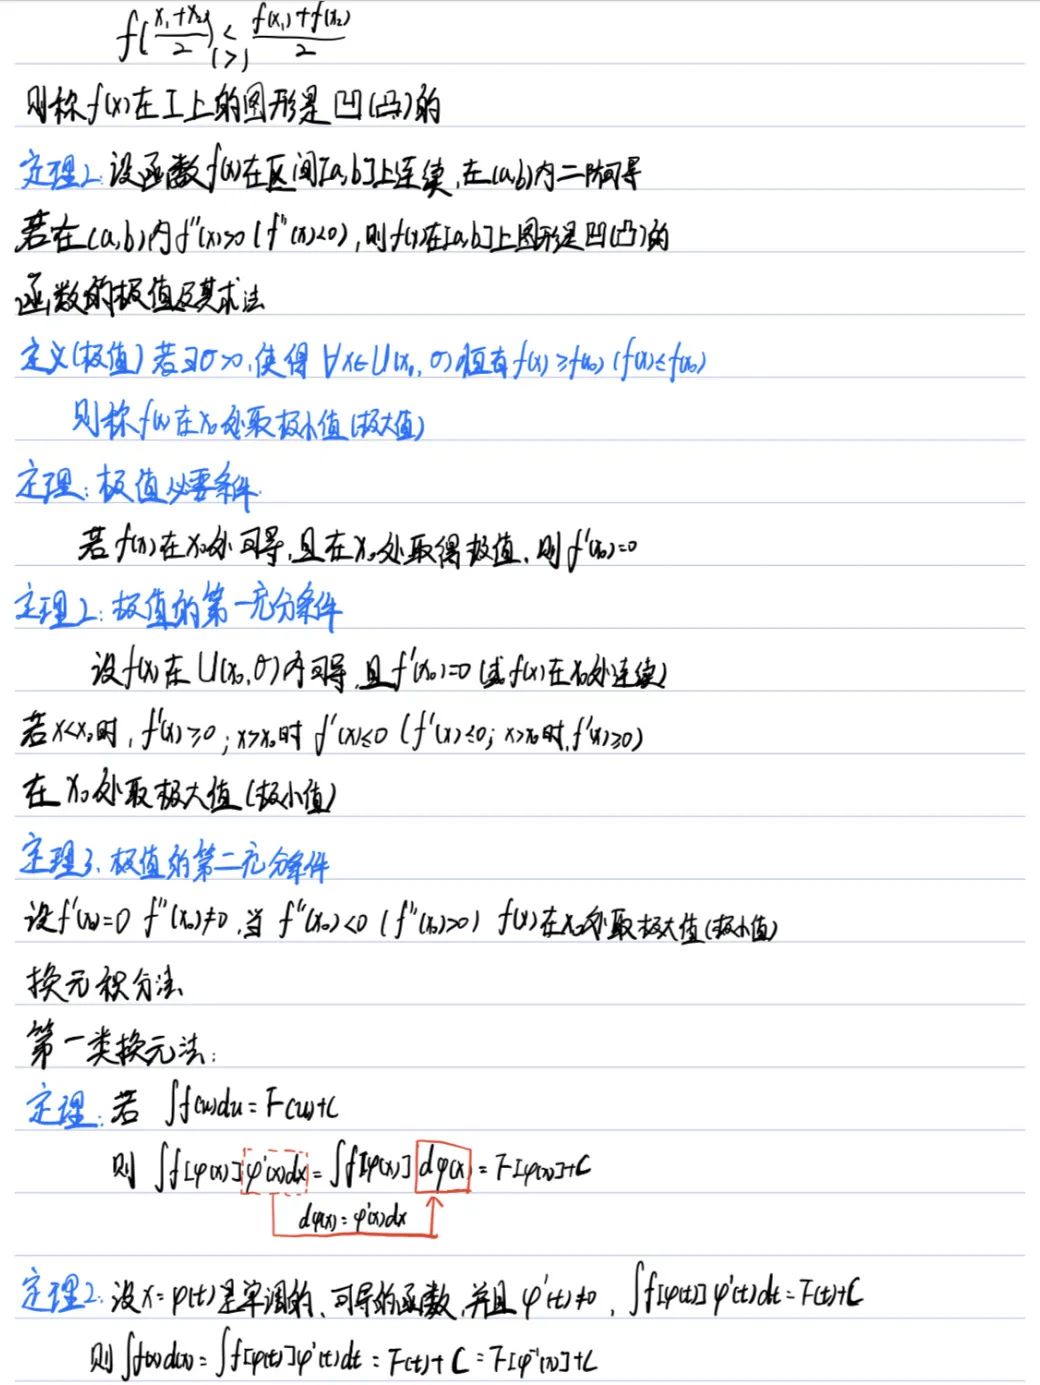 f(x₁+x₂/2) <(>) f(x₁)+f(x₂)/2
则称f(x)在I上的图形是凹(凸)的
定理2:设函数f(x)在区间[a,b]上连续,在(a,b)内二阶可导
若在(a,b)内f''(x)>0(f''(x)<0),则f(x)在[a,b]上图形是凹(凸)的
函数的极值及其求法
定义(极值)若∃δ>0,使得∀x∈U(x₀,δ)恒有f(x)≥f(x₀)(f(x)≤f(x₀))
则称f(x)在x₀处取极小值(极大值)
定理:极值必要条件
若f(x)在x₀处可导,且在x₀处取得极值,则f'(x₀)=0
定理2:极值的第一充分条件
设f(x)在U(x₀,δ)内可导,且f'(x₀)=0(或f(x)在x₀处连续)
若x<x₀时,f'(x)≥0;x>x₀时f'(x)≤0(f'(x)≤0;x>x₀时,f'(x)≥0)
在x₀处取极大值(极小值)
定理3.极值的第二充分条件
设f'(x₀)=0 f''(x₀)≠0,当f''(x₀)<0(f''(x₀)>0)f(x)在x₀处取极大值(极小值)
换元积分法
第一类换元法:
定理:若 ∫f(u)du=F(u)+C
则 ∫f[φ(x)]φ'(x)dx=∫f[φ(x)]dφ(x)=F[φ(x)]+C
dφ(x)=φ'(x)dx
定理2.设x=φ(t)是单调的、可导的函数,并且φ'(t)≠0,∫f[φ(t)]φ'(t)dt=F(t)+C
则∫f(x)d(x)=∫f[φ(t)]φ'(t)dt=F(t)+C=F[φ⁻¹(x)]+C